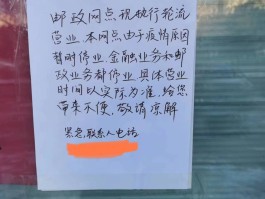 邮政网点现执行轮流
营业.本网点由于疫情原因
暂时停业.金融业务和邮
政业务都停业.具体营业
时间以实际为准.给您
带来不便.敬请凉解
紧急联系人电话